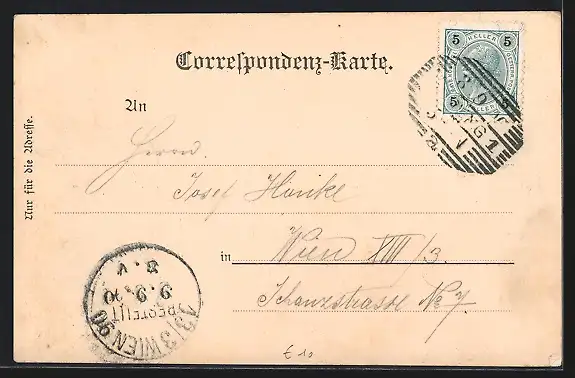 Correspondenz-Karte.
5 HELLER 5
5 HELLER 5
An
Herrn
Josef Hanike
in Wien XIII/3.
Schanzstrasse No 7.
Nur für die Adresse.
8. V
9. 9. 00
BESTELLT
13/3 WIEN 90
£ 10